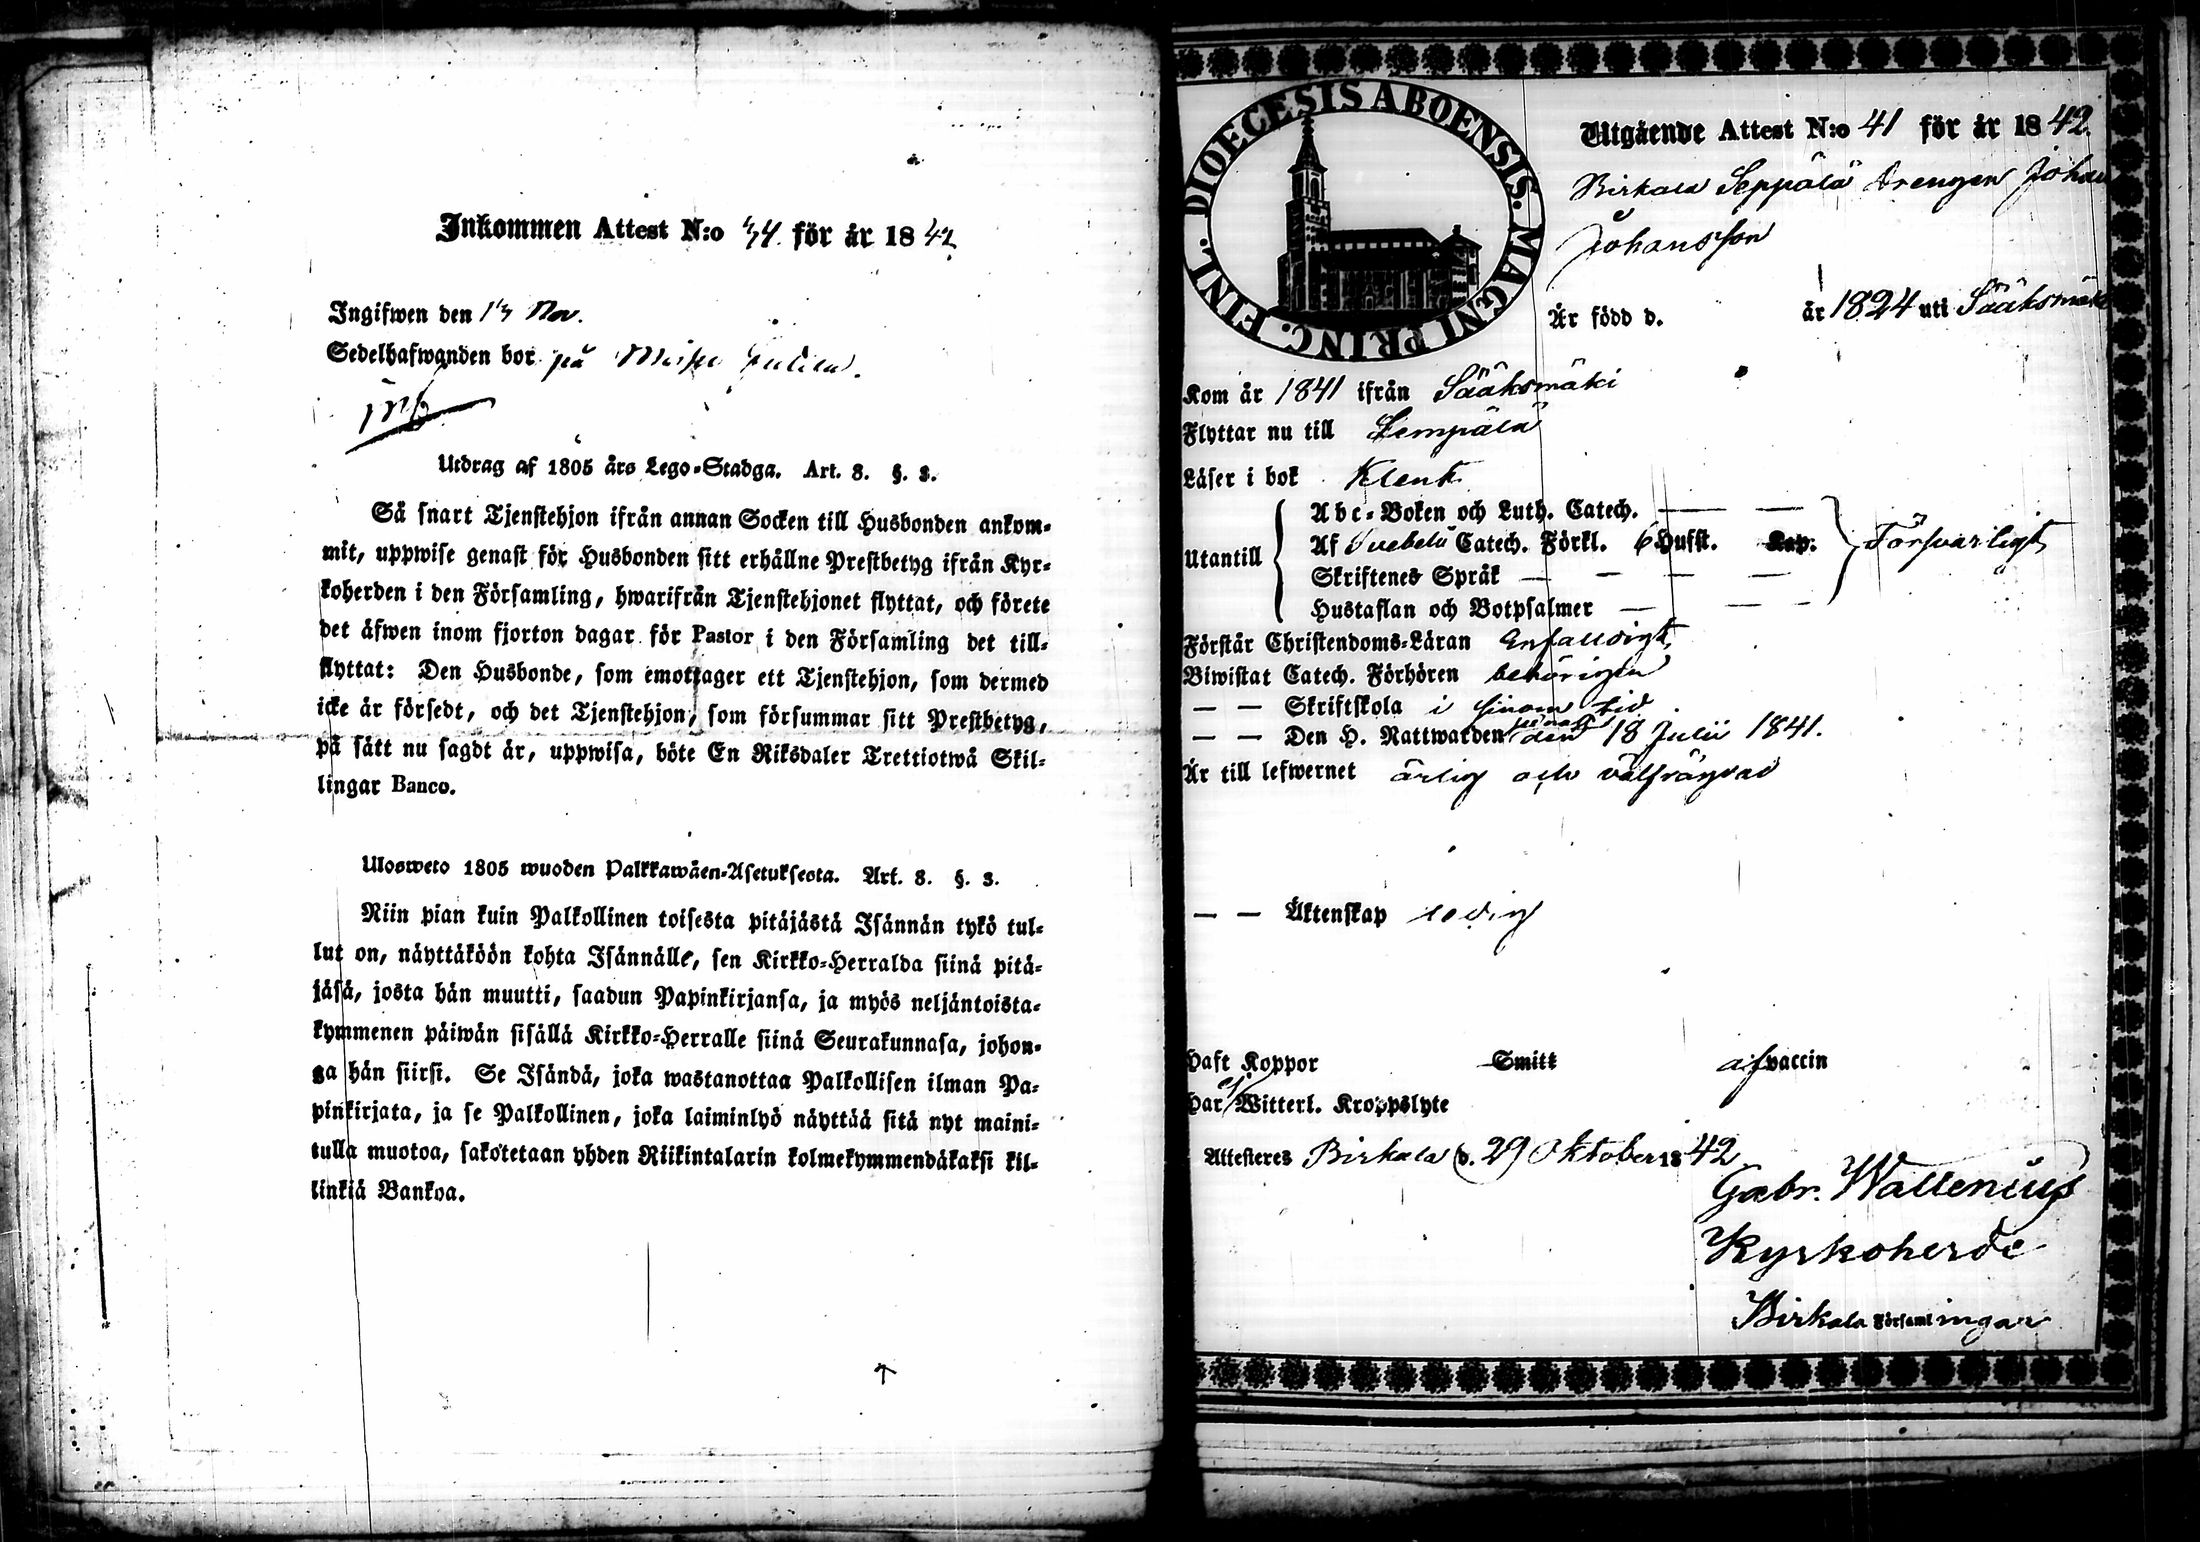 Inkommen Attest N:o 34 för år 1842
Ingifwen den 13 Nov.
Sedelhafwanden bor på
Utdrag af 1805 års Lego-Stadga. Art. 8. §. 3.
Så snart Tjenstehjon ifrån annan Socken till Husbonden ankom-
mit, uppwise genast för Husbonden sitt erhållne Prestbetyg ifrån Kyr-
koherden i den Församling, hwarifrån Tjenstehjonet flyttat, och förete
det äfwen inom fjorton dagar för Pastor i den Församling det till-
flyttat: Den Husbonde, som emottager ett Tjenstehjon, som dermed
icke är försedt, och det Tjenstehjon, som försummar sitt Prestbetyg,
på sätt nu sagdt är, uppwisa, böte En Riksdaler Trettiotwå Skil-
lingar Banco.
Ulosweto 1805 wuoden Palkkawäen-Asetuksesta. Art. 8. §. 3.
Niin pian kuin Palkollinen toisesta pitäjästä Isännän tykö tul-
lut on, näyttäköön kohta Isännälle, sen Kirkko-Herralda siinä pitä-
jäsä, josta hän muutti, saadun Papinkirjansa, ja myös neljäntoista-
kymmenen päiwän sisällä Kirkko-Herralle siinä Seurakunnasa, johon-
ga hän siirsi. Se Isändä, joka wastanottaa Palkollisen ilman Pa-
pinkirjata, ja se Palkollinen, joka laiminlyö näyttää sitä nyt maini-
tulla muotoa, sakotetaan yhden Riikintalarin kolmekymmendäkaksi kil-
linkiä Bankoa.
DIOECESIS ABOENSIS. MAGNI PRINC. FINL.
Utgående Attest N:o 41 för år 1842
Birkala Seppälä Drengen Johan
Johansson
Är född d. år 1824 uti Sääksmäki
Kom år 1841 ifrån Sääksmäki
Flyttar nu till Lempälä
Läser i bok Klent
Utantill
Abc-Boken och Luth. Catech. — —
Af Svebelii Catech. Förkl. 6 Hufst. Kap.
Skriftenes Språk — — — —
Hustaflan och Botpsalmer — — —
Försvarligt
Förstår Christendoms-Läran Enfalldigt
Biwistat Catech. Förhören behörigen
— — Skriftskola i sinom tid
— — Den H. Nattwarden den 18 Julii 1841.
Är till lefwernet ärlig och välfrägdad
— — Äktenskap ledig
Haft Koppor Smitt af vaccin
Har ej Witterl. Kroppslyte
Attesteras Birkala d. 29 Oktober 1842
Gabr. Wallenius
Kyrkoherde
Birkala Församlingar